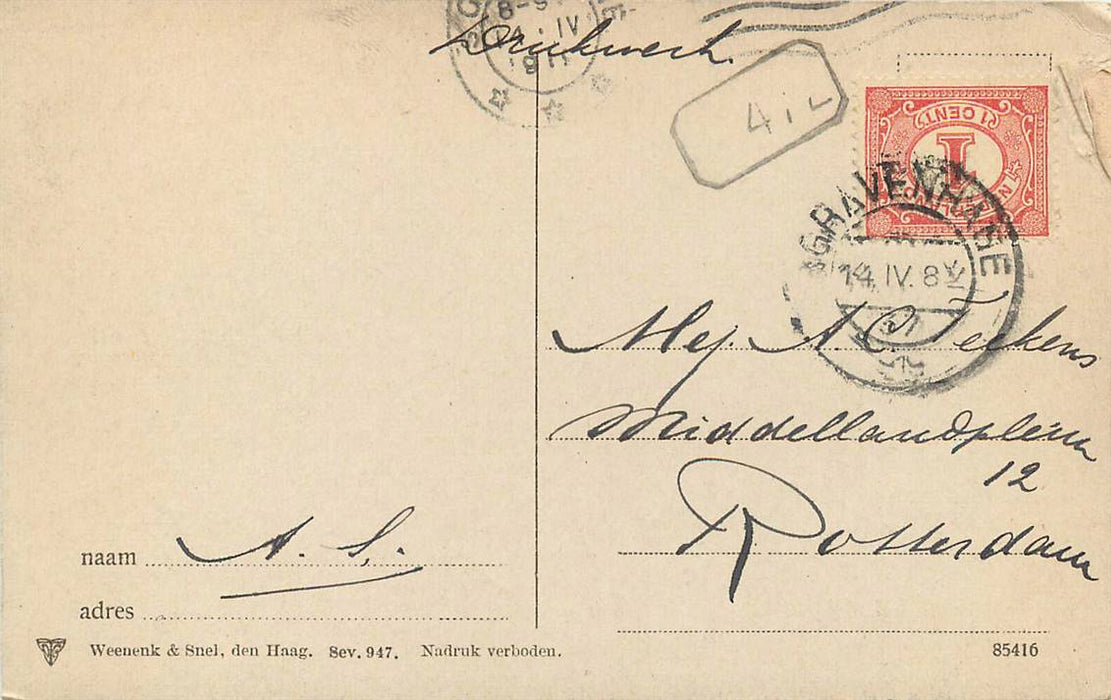 Drukwerk.
8-9
4. IV
191
4. L
1 CENT
1
'SGRAVENHAGE
14. IV. 8
Mej. A Teekens
Middellandplein
12
Rotterdam
naam A. S.
adres
Weenenk & Snel, den Haag. Sev. 947. Nadruk verboden.
85416